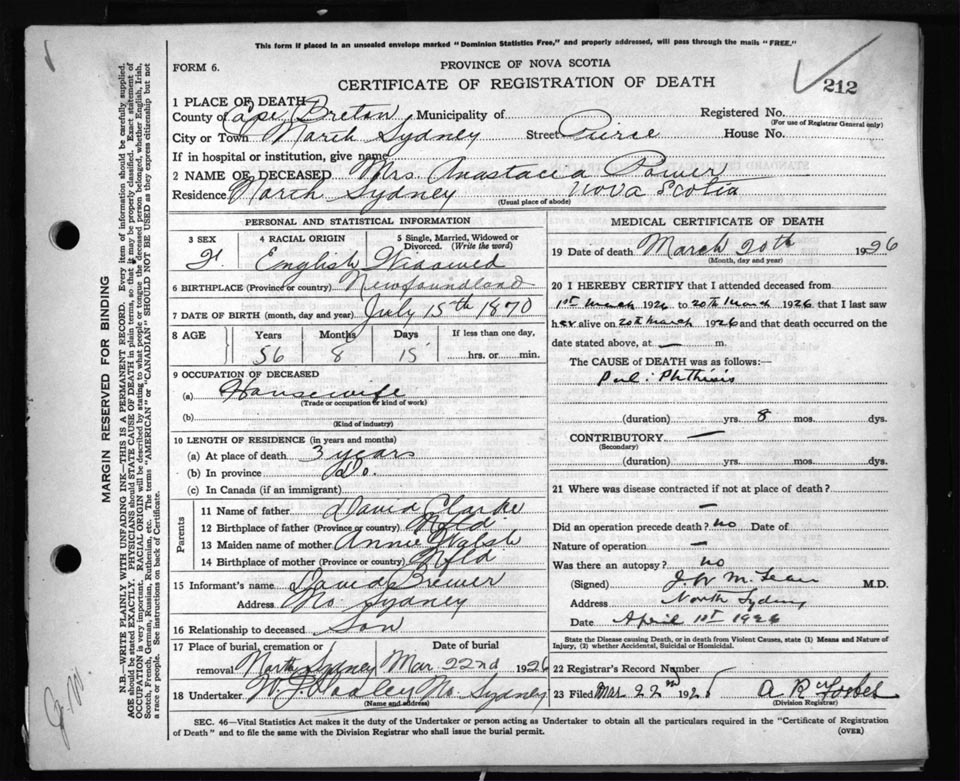 This form if placed in an unsealed envelope marked "Dominion Statistics Free," and properly addressed, will pass through the mails "FREE."
FORM 6.
PROVINCE OF NOVA SCOTIA
CERTIFICATE OF REGISTRATION OF DEATH
212
1 PLACE OF DEATH
County of Cape Breton Municipality of
Registered No.
(For use of Registrar General only)
City or Town North Sydney Street Pierce House No.
If in hospital or institution, give name
2 NAME OF DECEASED Mrs Anastacia Power
Residence North Sydney Nova Scotia
(Usual place of abode)
PERSONAL AND STATISTICAL INFORMATION
3 SEX
F.
4 RACIAL ORIGIN
English
5 Single, Married, Widowed or Divorced. (Write the word)
Widowed
6 BIRTHPLACE (Province or country) Newfoundland
7 DATE OF BIRTH (month, day and year) July 15th 1870
8 AGE Years Months Days If less than one day,
56 8 15 hrs. or min.
9 OCCUPATION OF DECEASED
(a) Housewife
(Trade or occupation or kind of work)
(b)
(Kind of industry)
10 LENGTH OF RESIDENCE (in years and months)
(a) At place of death 3 years
(b) In province Do.
(c) In Canada (if an immigrant)
Parents
11 Name of father David Clarke
12 Birthplace of father (Province or country) Nfld.
13 Maiden name of mother Annie Walsh
14 Birthplace of mother (Province or country) Nfld
15 Informant's name David Brewer
Address No Sydney
16 Relationship to deceased Son
17 Place of burial, cremation or removal North Sydney
Date of burial
Mar 22nd 1926
18 Undertaker W. J. Dooley No. Sydney
(Name and address)
MEDICAL CERTIFICATE OF DEATH
19 Date of death March 20th 1926
(Month, day and year)
20 I HEREBY CERTIFY that I attended deceased from
1st March 1926 to 20th March 1926 that I last saw
her alive on 20th March 1926 and that death occurred on the
date stated above, at — m.
The CAUSE of DEATH was as follows:
Pul: Phthisis
(duration) yrs. 8 mos. dys.
CONTRIBUTORY —
(Secondary)
(duration) yrs. mos. dys.
21 Where was disease contracted if not at place of death?
—
Did an operation precede death? no Date of
Nature of operation —
Was there an autopsy? no
(Signed) J W McLean M.D.
Address North Sydney
Date April 1st 1926
State the Disease causing Death, or in death from Violent Causes, state (1) Means and Nature of
Injury, (2) whether Accidental, Suicidal or Homicidal.
22 Registrar's Record Number
23 Filed Mar 22nd 192 A R Forbes
(Division Registrar)
SEC. 46—Vital Statistics Act makes it the duty of the Undertaker or person acting as Undertaker to obtain all the particulars required in the "Certificate of Registration
of Death" and to file the same with the Division Registrar who shall issue the burial permit.
(OVER)
MARGIN RESERVED FOR BINDING
N.B.—WRITE PLAINLY WITH UNFADING INK—THIS IS A PERMANENT RECORD. Every item of information should be carefully supplied.
AGE should be stated EXACTLY. PHYSICIANS should STATE CAUSE OF DEATH in plain terms, so that it may be properly classified. Exact statement of
OCCUPATION is very important. RACIAL ORIGIN will be described by stating to what people or tongue the deceased person belonged, whether English, Irish,
Scotch, French, German, Russian, Ruthenian, etc. The terms "AMERICAN" or "CANADIAN" SHOULD NOT BE USED as they express citizenship but not
a race or people. See instructions on back of Certificate.